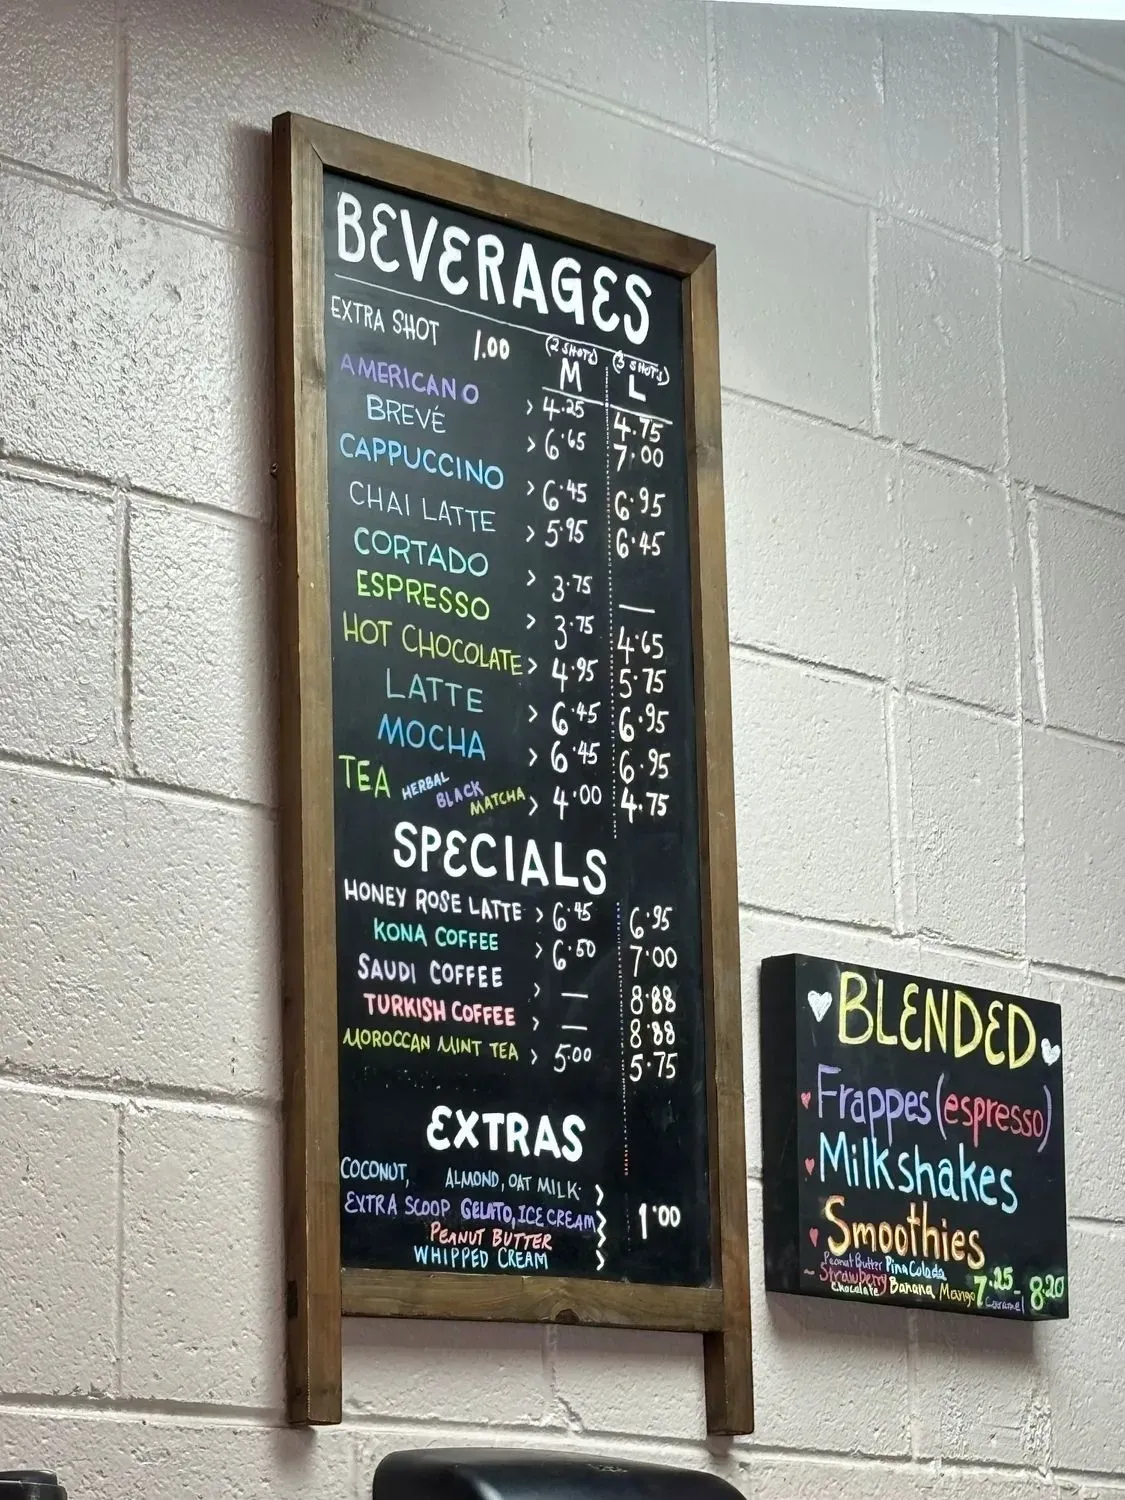 BEVERAGES
EXTRA SHOT 1.00 (2 SHOTS) M (3 SHOTS) L
AMERICANO > 4.25 4.75
BREVÉ > 6.65 7.00
CAPPUCCINO > 6.45 6.95
CHAI LATTE > 5.95 6.45
CORTADO > 3.75 —
ESPRESSO > 3.75 4.65
HOT CHOCOLATE > 4.95 5.75
LATTE > 6.45 6.95
MOCHA > 6.45 6.95
TEA HERBAL BLACK MATCHA > 4.00 4.75
SPECIALS
HONEY ROSE LATTE > 6.45 6.95
KONA COFFEE > 6.50 7.00
SAUDI COFFEE > — 8.88
TURKISH COFFEE > — 8.88
MOROCCAN MINT TEA > 5.00 5.75
EXTRAS
COCONUT, ALMOND, OAT MILK >
EXTRA SCOOP GELATO, ICE CREAM > 1.00
PEANUT BUTTER >
WHIPPED CREAM >
BLENDED
Frappes (espresso)
Milkshakes
Smoothies
Peanut Butter Pina Colada
~ Strawberry Banana Mango 7.25 - 8.20
Chocolate Caramel